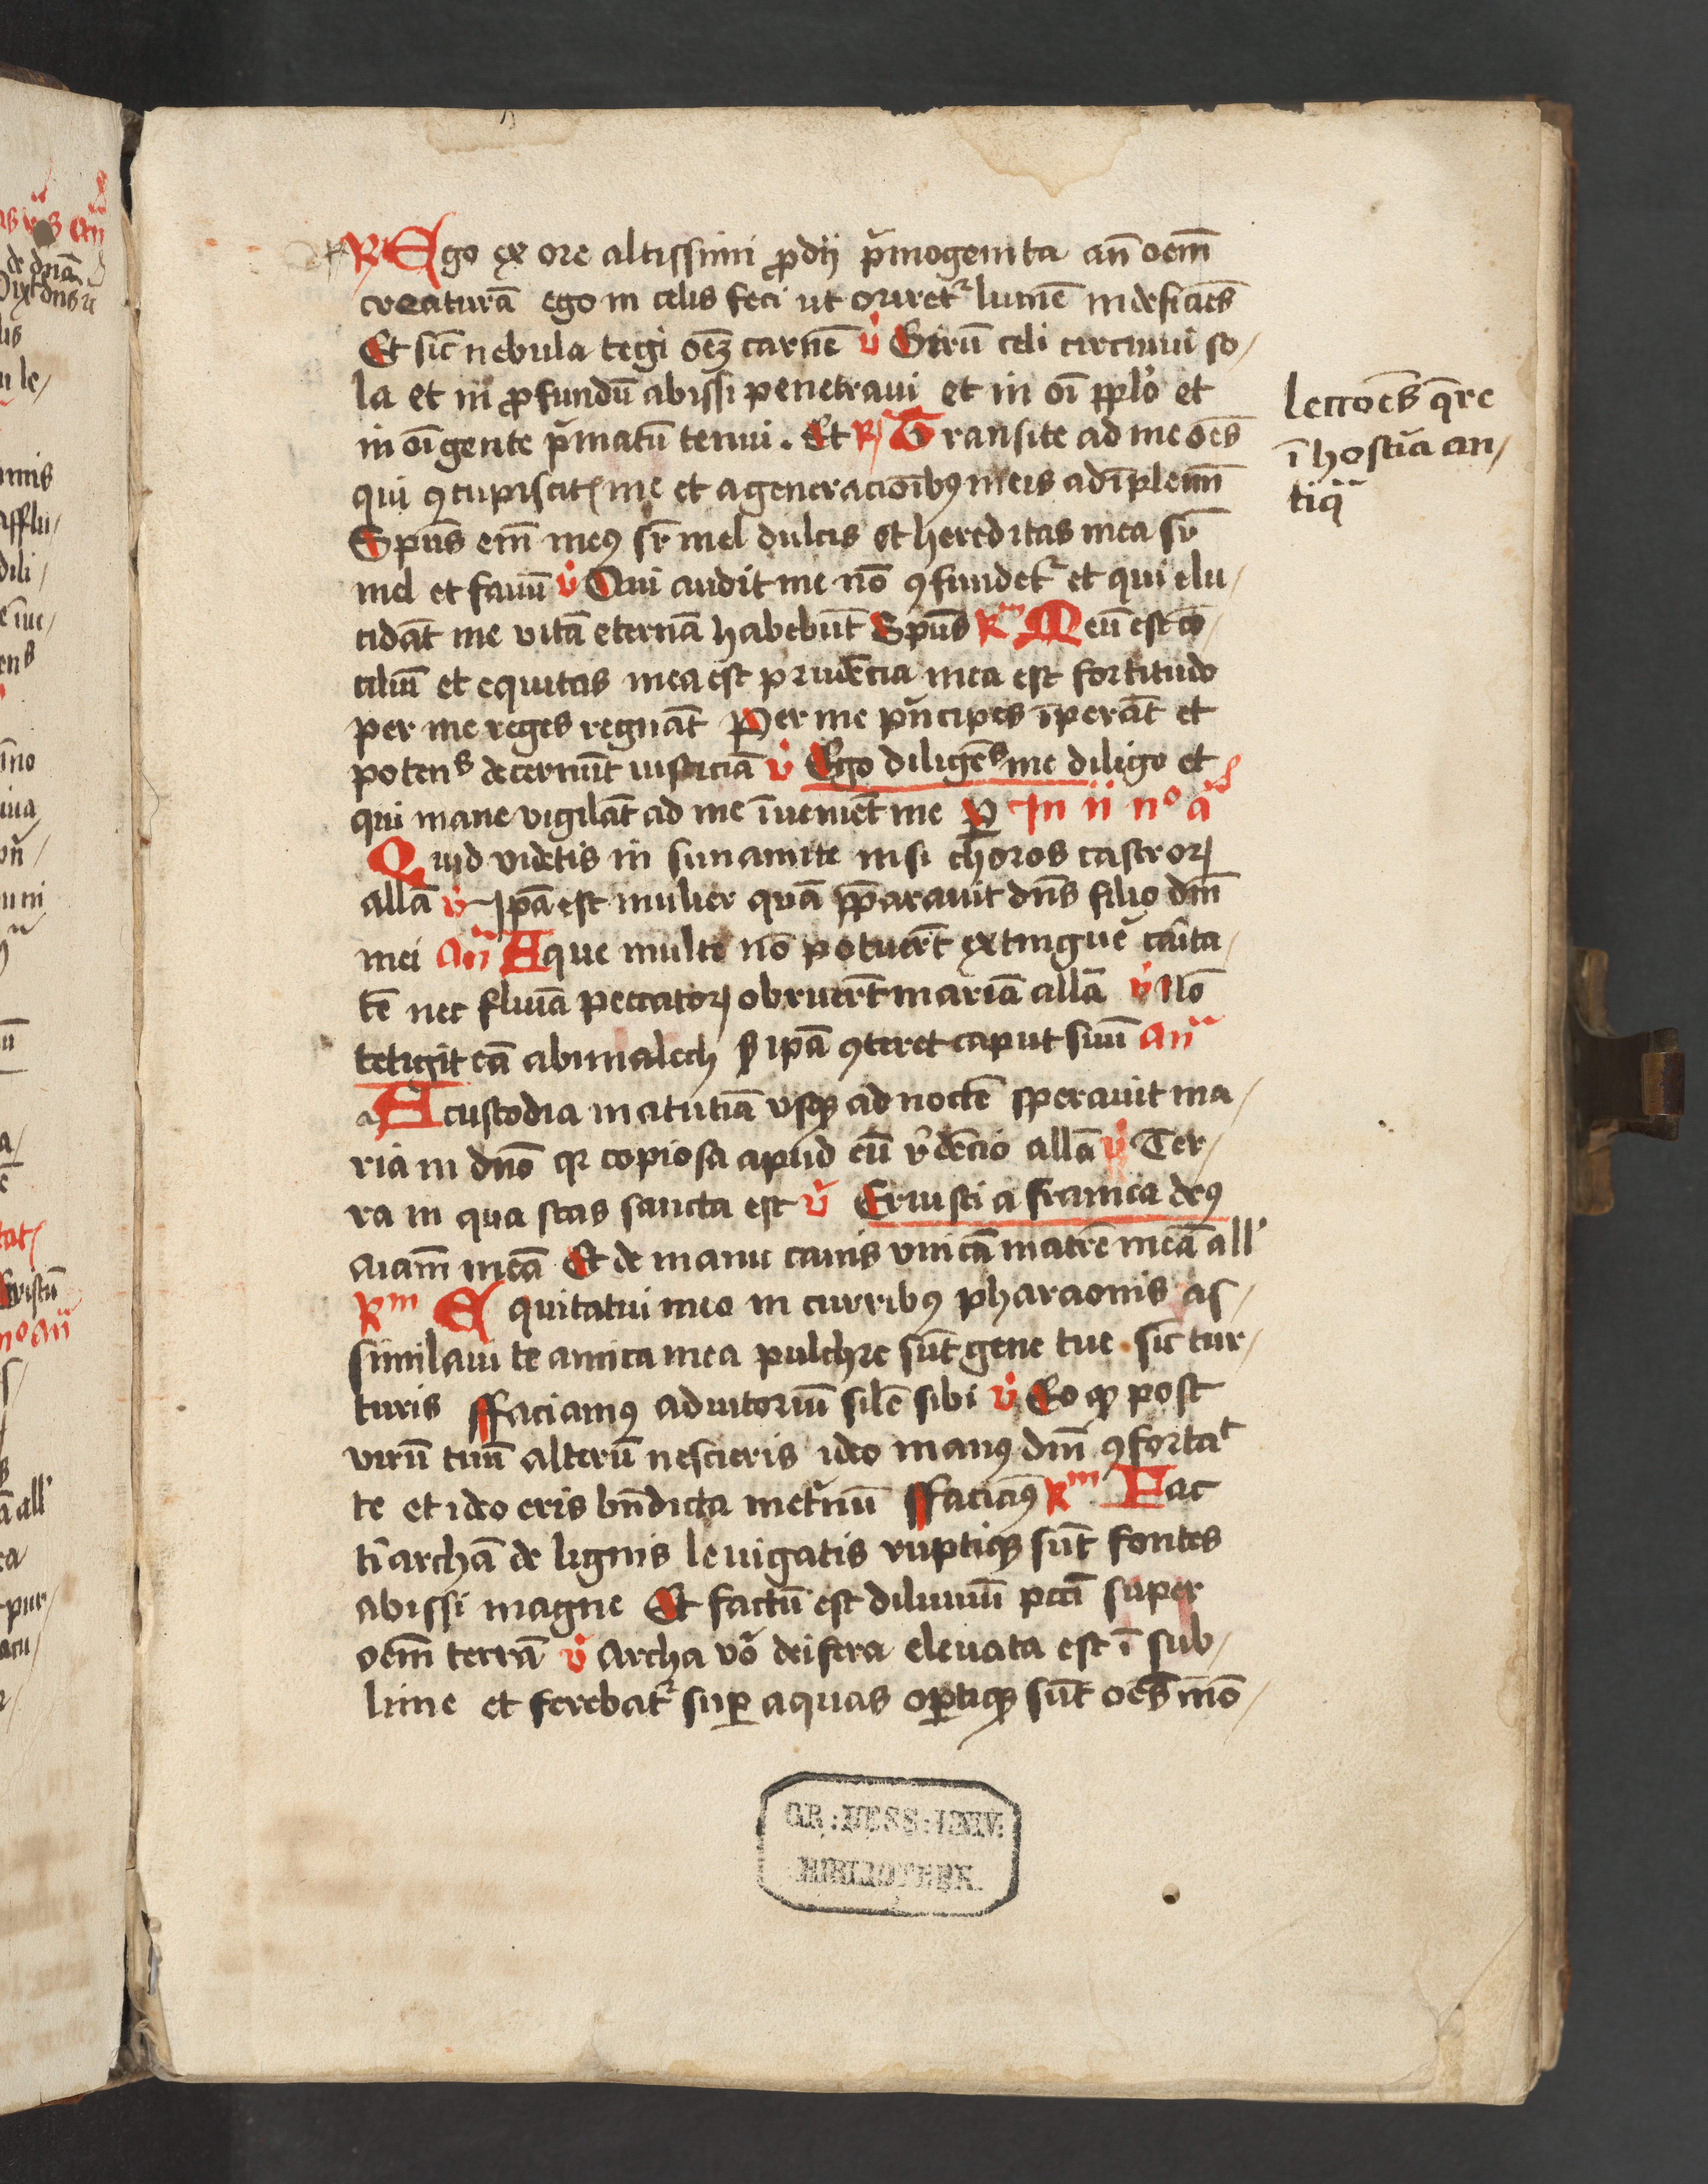 R Ego ex ore altissimi ꝓdij p̄mogenita an̄ oem̄
creaturā ego in celis feci ut oriret᷑ lumē indeficiēs
Et sic̄ nebula tegi oēꝫ carnē v̊ Girū celi circuiui so/
la et in ꝓfundū abissi penetraui et in oī pplo et
in oī gente p̄matū tenui . Et R Transite ad me oēs
qui ꝯcupiscitꝭ me et a generacioībꝯ meis adīplemī
Spūs em̄ meꝯ sr̄ mel dulcis et hereditas mea sr̄
mel et fauū v̊ Qui audit me nō ꝯfundet᷑ et qui elu/
cidāt me vitā eternā habebūt Spūs Rm Meū est cō/
ciliū et equitas mea est prudēcia mea est fortitudo
per me reges regnāt Per me pn̄cipes īperāt et
potens decernūt iusticiā v̊ Ego diligēs me diligo et
qui mane vigilāt ad me īueniēt me P In ii no a
Quid videtis in sunamite nisi choros castrorꝝ
allā v̊ Ipā est mulier quā pp̄arauit dn̄s filio dnī
mei an̄ Aque multe nō potuert̄ extinguē cārita/
tē nec fluuia peccatorꝝ obruert̄ mariā allā v̊ Nō
tetigit eā abimalech s̄ ipā ꝯteret caput suū an̄
a A custodia matutīa vsqꝫ ad noctē sperauit ma/
ria in dnō qꝛ copiosa apud eū rēdēcio allā v̊ Ter/
ra in qua stas sancta est v̊ Eruisti a framea deꝯ
aīam meā Et de manu canis vnicā matrē meā all'
Rm Equitatui meo in curribꝯ pharaonis as/
similaui te amica mea pulchre sūt gene tue . sic̄ tur/
turis ffaciamꝯ adiutoriū silē sibi v̊ Eo qꝫ post
virū tuū alterū nescieris ideo manꝯ dnī ꝯfortat
te et ideo eris bn̄dicta inet̄nū ffaciamꝯ Rm Fac
t' archā de lignis leuigatis ruptiqꝫ sūt fontes
abissi magne Et factū est diluuiū pctī super
oēm terrā v̊ Archa vō deifera eleuata est ī sub/
lime et ferebat᷑ suꝑ aquas oꝑtiqꝫ sūt oēs mō/
lectoēs q̄re
ī hostia an/
tiq̄
GR: HESS: UNIV:
BIBLIOTHEK.